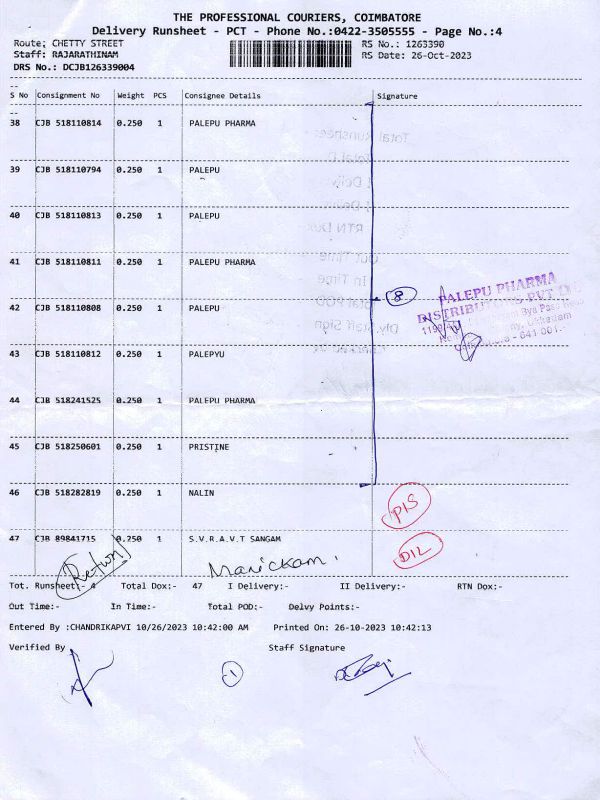 THE PROFESSIONAL COURIERS, COIMBATORE
Delivery Runsheet - PCT - Phone No.:0422-3505555 - Page No.:4
Route: CHETTY STREET RS No.: 1263390
Staff: RAJARATHINAM RS Date: 26-Oct-2023
DRS No.: DCJB126339004
S No Consignment No Weight PCS Consignee Details Signature
38 CJB 518110814 0.250 1 PALEPU PHARMA
39 CJB 518110794 0.250 1 PALEPU
40 CJB 518110813 0.250 1 PALEPU
41 CJB 518110811 0.250 1 PALEPU PHARMA
8
PALEPU PHARMA
DISTRIBUTORS PVT
42 CJB 518110808 0.250 1 PALEPU
641 001.
43 CJB 518110812 0.250 1 PALEPYU
44 CJB 518241525 0.250 1 PALEPU PHARMA
45 CJB 518250601 0.250 1 PRISTINE
46 CJB 518282819 0.250 1 NALIN
PIS
47 CJB 89841715 0.250 1 S.V.R.A.V.T SANGAM
DIL
Return Manickam.
Tot. Runsheet:- 4 Total Dox:- 47 I Delivery:- II Delivery:- RTN Dox:-
Out Time:- In Time:- Total POD:- Delvy Points:-
Entered By :CHANDRIKAPVI 10/26/2023 10:42:00 AM Printed On: 26-10-2023 10:42:13
Verified By Staff Signature